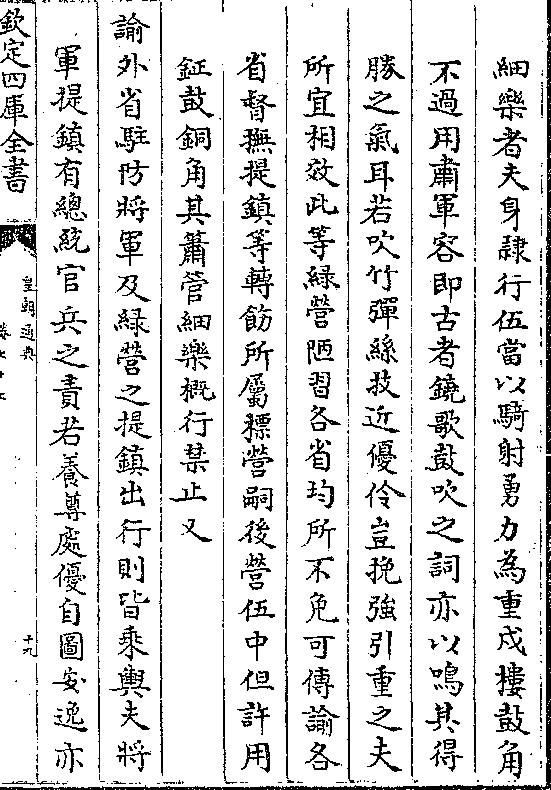 細樂者夫身隷行伍當以騎射勇力為重戍摟鼓角
不過用肅軍容即古者鐃歌鼓吹之詞亦以鳴其得
勝之氣耳若吹竹彈絲技近優伶豈挽強引重之夫
所宜相效此等緑營陋習各省均所不免可傳諭各
省督撫提鎮等轉飭所屬標營嗣後營伍中但許用
鉦鼓銅角其簫管細樂概行禁止又
諭外省駐防將軍及緑營之提鎮出行則皆乘輿夫將
軍提鎮有總統官兵之責若養尊處優自圖安逸亦
欽定四庫全書
皇朝通典
十九